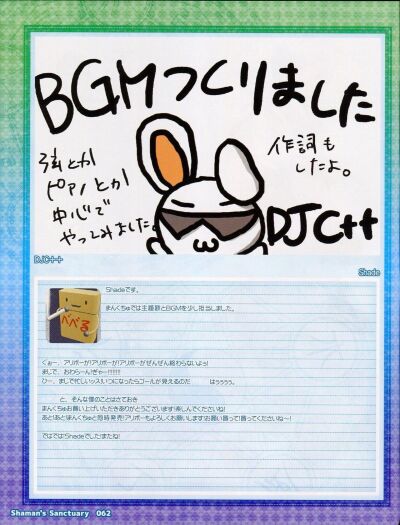 BGMつくりました
弦とか
ピアノとか
中心で
やってみました
作詞も
したよ。
DJC++
DJC++
Shade
べべる
Shadeです。
まんくちゅでは主題歌とBGMを少し担当しました。
くぁー、アリボーが!アリボーが!アリボーがぜんぜん終わらないよぅ!
まじで、おわらーん!ぎゃー!!!!!!!
ひー、まじで忙しいッス!いつになったらゴールが見えるのだ はぅぅぅぅ。
と、そんな僕のことはさておき
まんくちゅお買い上げいただきありがとうございます!楽しんでくださいね!
あと!あとはんくちゅと同時発売!アリボーもよろしくお願いします!お願い買って!買ってくださいね〜!
ではでは!Shadeでした!またね!
Shaman's Sanctuary 062